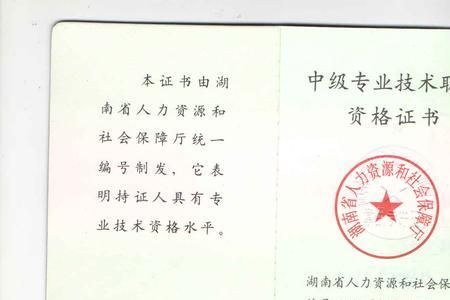 本证书由湖
南省人力资源和
社会保障厅统一
编号制发，它表
明持证人具有专
业技术资格水平。
中级专业技术职
资格证书
湖南省人力资源和社会保障厅
湖南省人力资源和社会保